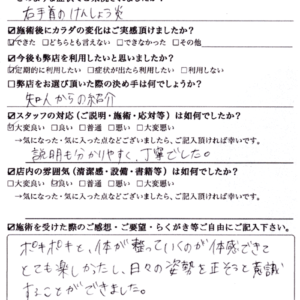 右手首のけんしょう炎
☑施術後にカラダの変化はご実感頂けましたか?
☑できた □どちらとも言えない □できなかった □その他
☑今後も弊店を利用したいと思いましたか?
☑定期的に利用したい □症状が出たら利用したい □利用しない
□弊店をお選び頂いた際の決め手は何でしょうか?
知人からの紹介
☑スタッフの対応(ご説明・施術・応対等)は如何でしたか?
☑大変良い □良い □普通 □悪い □大変悪い
→気になった・気に入った点などございましたら、ご記入頂ければ幸いです。
説明も分かりやすく、丁寧でした。
☑店内の雰囲気(清潔感・設備・書籍等)は如何でしたか?
□大変良い ☑良い □普通 □悪い □大変悪い
→気になった・気に入った点などございましたら、ご記入頂ければ幸いです。
☑施術を受けた際のご感想・ご要望・らくがき等ご自由にご記入下さい。
ポキポキと、体が整っていくのが体感できて
とても楽しかったし、日々の姿勢を正そうと意識
することができました。